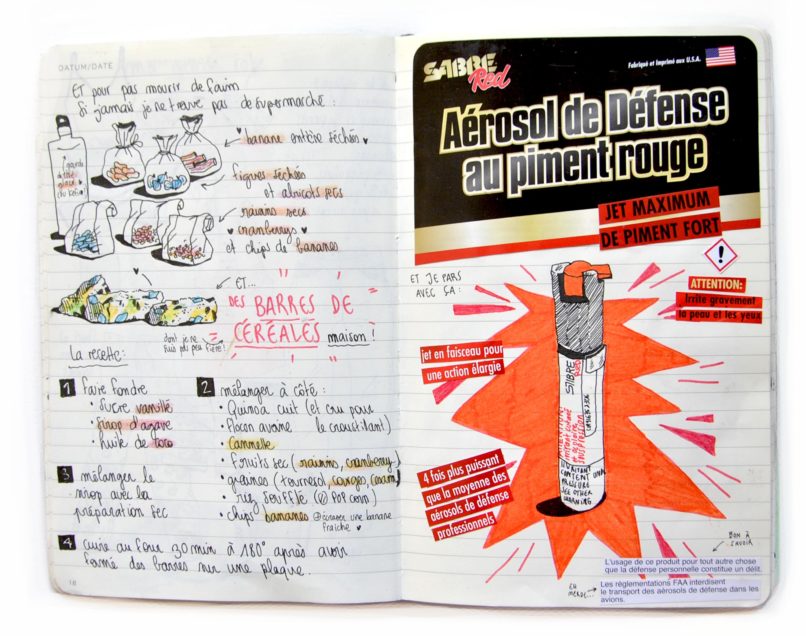 DATUM/DATE
ET pour pas mourir de faim
Si jamais je ne trouve pas de supermarché :
banane entière séchées
figues séchées
et abricots secs
raisins secs
cranberrys
et chips de bananes
ET...
DES BARRES DE
CÉRÉALES maison !
dont je ne
suis pas peu fière !
La recette :
1 faire fondre
• sucre vanillé
• sirop d'agave
• huile de coco
2 mélanger à côté :
• Quinoa cuit (et cru pour
le croustillant)
• flocon avoine
• Cannelle
• fruits sec (raisins, cranberry)
• graines (tournesol, courges
• riz soufflé (pop corn)
• chips bananes ⊕ écraser une banane
fraîche
3 mélanger le
sirop avec la
préparation sec
4 cuire au four 30 min à 180° après avoir
formé des barres sur une plaque.
18
SABRE
Red
Fabriqué et Imprimé aux U.S.A.
Aérosol de Défense
au piment rouge
JET MAXIMUM
DE PIMENT FORT
ET JE PARS
AVEC ÇA :
!
ATTENTION:
Irrite gravement
la peau et les yeux
jet en faisceau pour
une action élargie
SABRE
4 fois plus puissant
que la moyenne des
aérosols de défense
professionnels
IRRITANT
CONTENT UNDER
PRESSURE
SEE OTHER
WARNING
BON À
SAVOIR
L'usage de ce produit pour tout autre chose
que la défense personnelle constitue un délit.
EH
MERDE...
Les réglementations FAA interdisent
le transport des aérosols de défense dans les
avions.